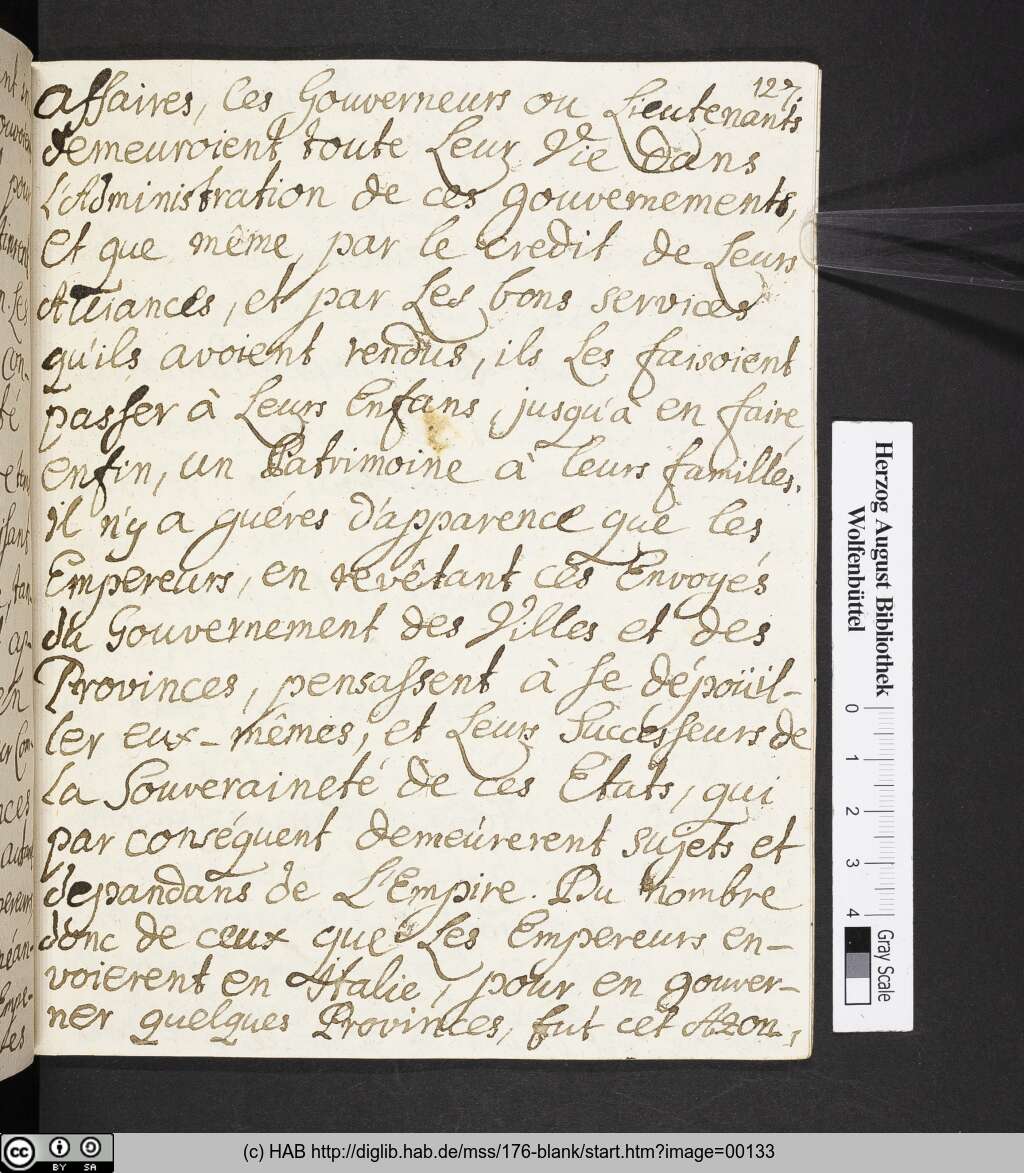 127.
affaires, Ces Gouverneurs ou Lieutenants
demeuroient toute Leur Vie dans
L'Administration de ces gouvernements,
et que même, par le credit de Leurs
Alliances, et par Les bons services
qu'ils avoient rendus, ils Les faisoient
passer à Leurs Enfans, jusqu'à en faire,
enfin, un Patrimoine à leurs familles.
il n'y a guéres d'apparence que les
Empereurs, en revêtant ces Envoyés
du Gouvernement des Villes et des
Provinces, pensassent à se dépoüil-
ler eux-mêmes, et Leurs Successeurs de
La Souveraineté de ces Etats, qui
par conséquent demeurerent sujets et
dependans de L'Empire. Du nombre
donc de ceux que Les Empereurs en-
voierent en Italie, pour en gouver-
ner quelques Provinces, fut cet Azon,
Herzog August Bibliothek
Wolfenbüttel
0 1 2 3 4 Gray Scale
cc BY SA
(c) HAB http://diglib.hab.de/mss/176-blank/start.htm?image=00133